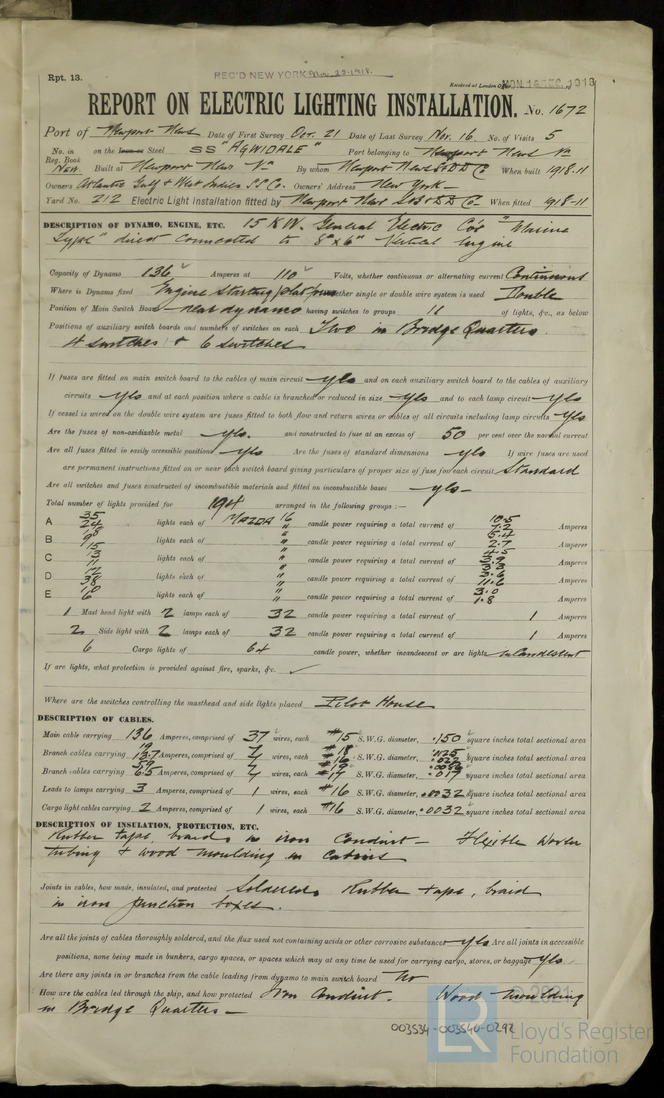 Rpt. 13.
REC'D NEW YORK Nov. 29. 1918.
Received at London Office MON. 16 DEC. 1918
REPORT ON ELECTRIC LIGHTING INSTALLATION. No. 1672
Port of Newport News Date of First Survey Oct. 21 Date of Last Survey Nov. 16 No. of Visits 5
No. in Reg. Book New. on the Iron or Steel SS "AGWIDALE" Port belonging to Newport News Va
Built at Newport News Va By whom Newport News S & DD Co When built 1918-11
Owners Atlantic Gulf & West Indies SS Co. Owners' Address New York
Yard No. 212 Electric Light installation fitted by Newport News S B & DD Co When fitted 1918-11
DESCRIPTION OF DYNAMO, ENGINE, ETC. 15 KW. General Electric Co's "Marine
Type" direct connected to 8" x 6" Vertical Engine
Capacity of Dynamo 136 Amperes at 110 Volts, whether continuous or alternating current Continuous
Where is Dynamo fixed Engine starting platform whether single or double wire system is used Double
Position of Main Switch Board near dynamo having switches to groups 11 of lights, &c., as below
Positions of auxiliary switch boards and numbers of switches on each Two in Bridge Quarters
4 switches & 6 switches
If fuses are fitted on main switch board to the cables of main circuit yes and on each auxiliary switch board to the cables of auxiliary
circuits yes and at each position where a cable is branched or reduced in size yes and to each lamp circuit yes
If vessel is wired on the double wire system are fuses fitted to both flow and return wires or cables of all circuits including lamp circuits yes
Are the fuses of non-oxidizable metal yes. and constructed to fuse at an excess of 50 per cent over the normal current
Are all fuses fitted in easily accessible positions yes Are the fuses of standard dimensions yes If wire fuses are used
are permanent instructions fitted on or near each switch board giving particulars of proper size of fuse for each circuit Standard
Are all switches and fuses constructed of incombustible materials and fitted on incombustible bases yes
Total number of lights provided for 194 arranged in the following groups :—
35 MAZDA 16 10.5
A 24 lights each of " candle power requiring a total current of 7.2 Amperes
18 " 5.4
B 9 lights each of " candle power requiring a total current of 2.7 Amperes
15 " 4.5
C 13 lights each of " candle power requiring a total current of 3.9 Amperes
11 " 3.3
D 12 lights each of " candle power requiring a total current of 3.6 Amperes
38 " 11.6
E 10 lights each of " candle power requiring a total current of 3.0 Amperes
6 " 1.8
1 Mast head light with 2 lamps each of 32 candle power requiring a total current of 1 Amperes
2 Side light with 2 lamps each of 32 candle power requiring a total current of 1 Amperes
6 Cargo lights of 64 candle power, whether incandescent or arc lights Incandescent
If arc lights, what protection is provided against fire, sparks, &c.
Where are the switches controlling the masthead and side lights placed Pilot House
DESCRIPTION OF CABLES.
Main cable carrying 136 Amperes, comprised of 37 wires, each #15 S.W.G. diameter, .150 square inches total sectional area
Branch cables carrying 13.7 Amperes, comprised of 7 wires, each #16 S.W.G. diameter, square inches total sectional area
Branch cables carrying 6.5 Amperes, comprised of 7 wires, each #17 S.W.G. diameter, .017 square inches total sectional area
Leads to lamps carrying 3 Amperes, comprised of 1 wires, each #16 S.W.G. diameter, .0032 square inches total sectional area
Cargo light cables carrying 2 Amperes, comprised of 1 wires, each #16 S.W.G. diameter, .0032 square inches total sectional area
DESCRIPTION OF INSULATION, PROTECTION, ETC.
Rubber tape, braid, in iron Conduit — Flexible Woven
tubing & wood moulding in Cabins
Joints in cables, how made, insulated, and protected Soldered, Rubber tape, braid
in iron junction boxes.
Are all the joints of cables thoroughly soldered, and the flux used not containing acids or other corrosive substances yes Are all joints in accessible
positions, none being made in bunkers, cargo spaces, or spaces which may at any time be used for carrying cargo, stores, or baggage yes
Are there any joints in or branches from the cable leading from dynamo to main switch board No
How are the cables led through the ship, and how protected Iron Conduit. Wood moulding
in Bridge Quarters —
003534-003540-0292
© 2021
LR
Lloyd's Register
Foundation